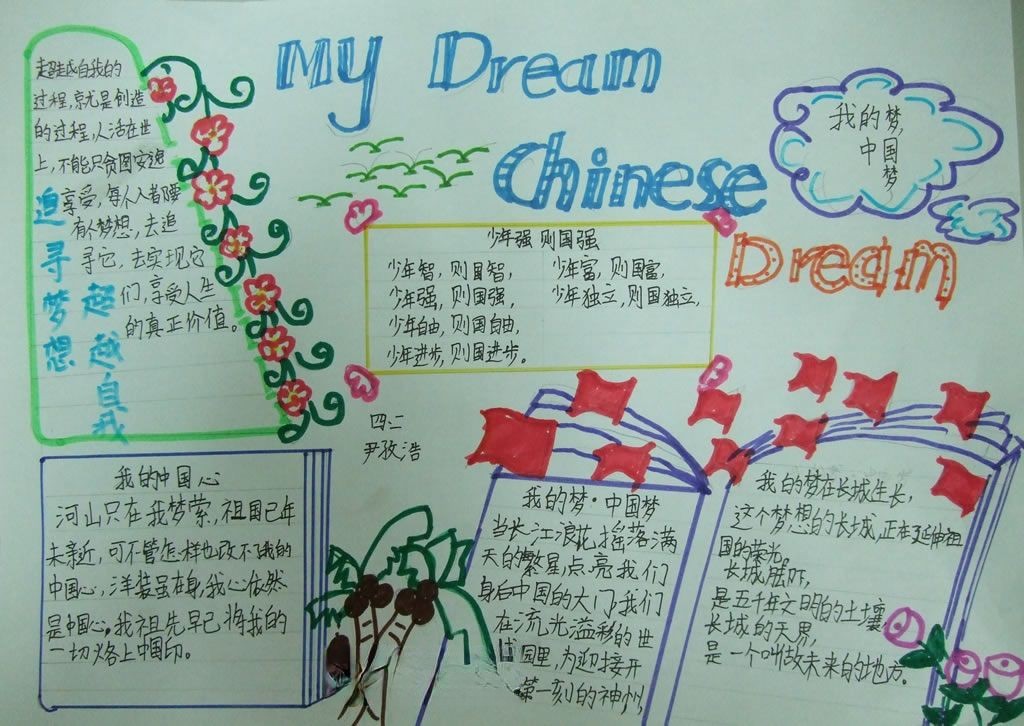 My Dream
Chinese
Dream
我的梦,
中国
梦
超越自我的
过程,就是创造
的过程,人活在世
上,不能只贪图安逸
享受,每人人者腰
有人梦想,去追
寻它,去实现它
们,享受人生
的真正价值。
追寻梦想
超越自我
少年强 则国强
少年智,则国智,
少年强,则国强,
少年自由,则国自由,
少年进步,则国进步。
少年富,则国富,
少年独立,则国独立,
四二
尹孜浩
我的中国心
河山只在我梦萦,祖国已年
未亲近,可不管怎样也改不了我的
中国心,洋装虽在身,我心依然
是中国心。我祖先早已将我的
一切烙上中国印。
我的梦·中国梦
当长江浪花,摇落满
天的繁星,点亮我们
身后中国的大门,我们
在流光溢彩的世
园里,为迎接开
第一刻的神州,
我的梦在长城生长,
这个梦想的长城,正在延伸祖
国的荣光。
长城屈吓,
是五千年文明的土壤,
长城的天界,
是一个叫故未来的地方。